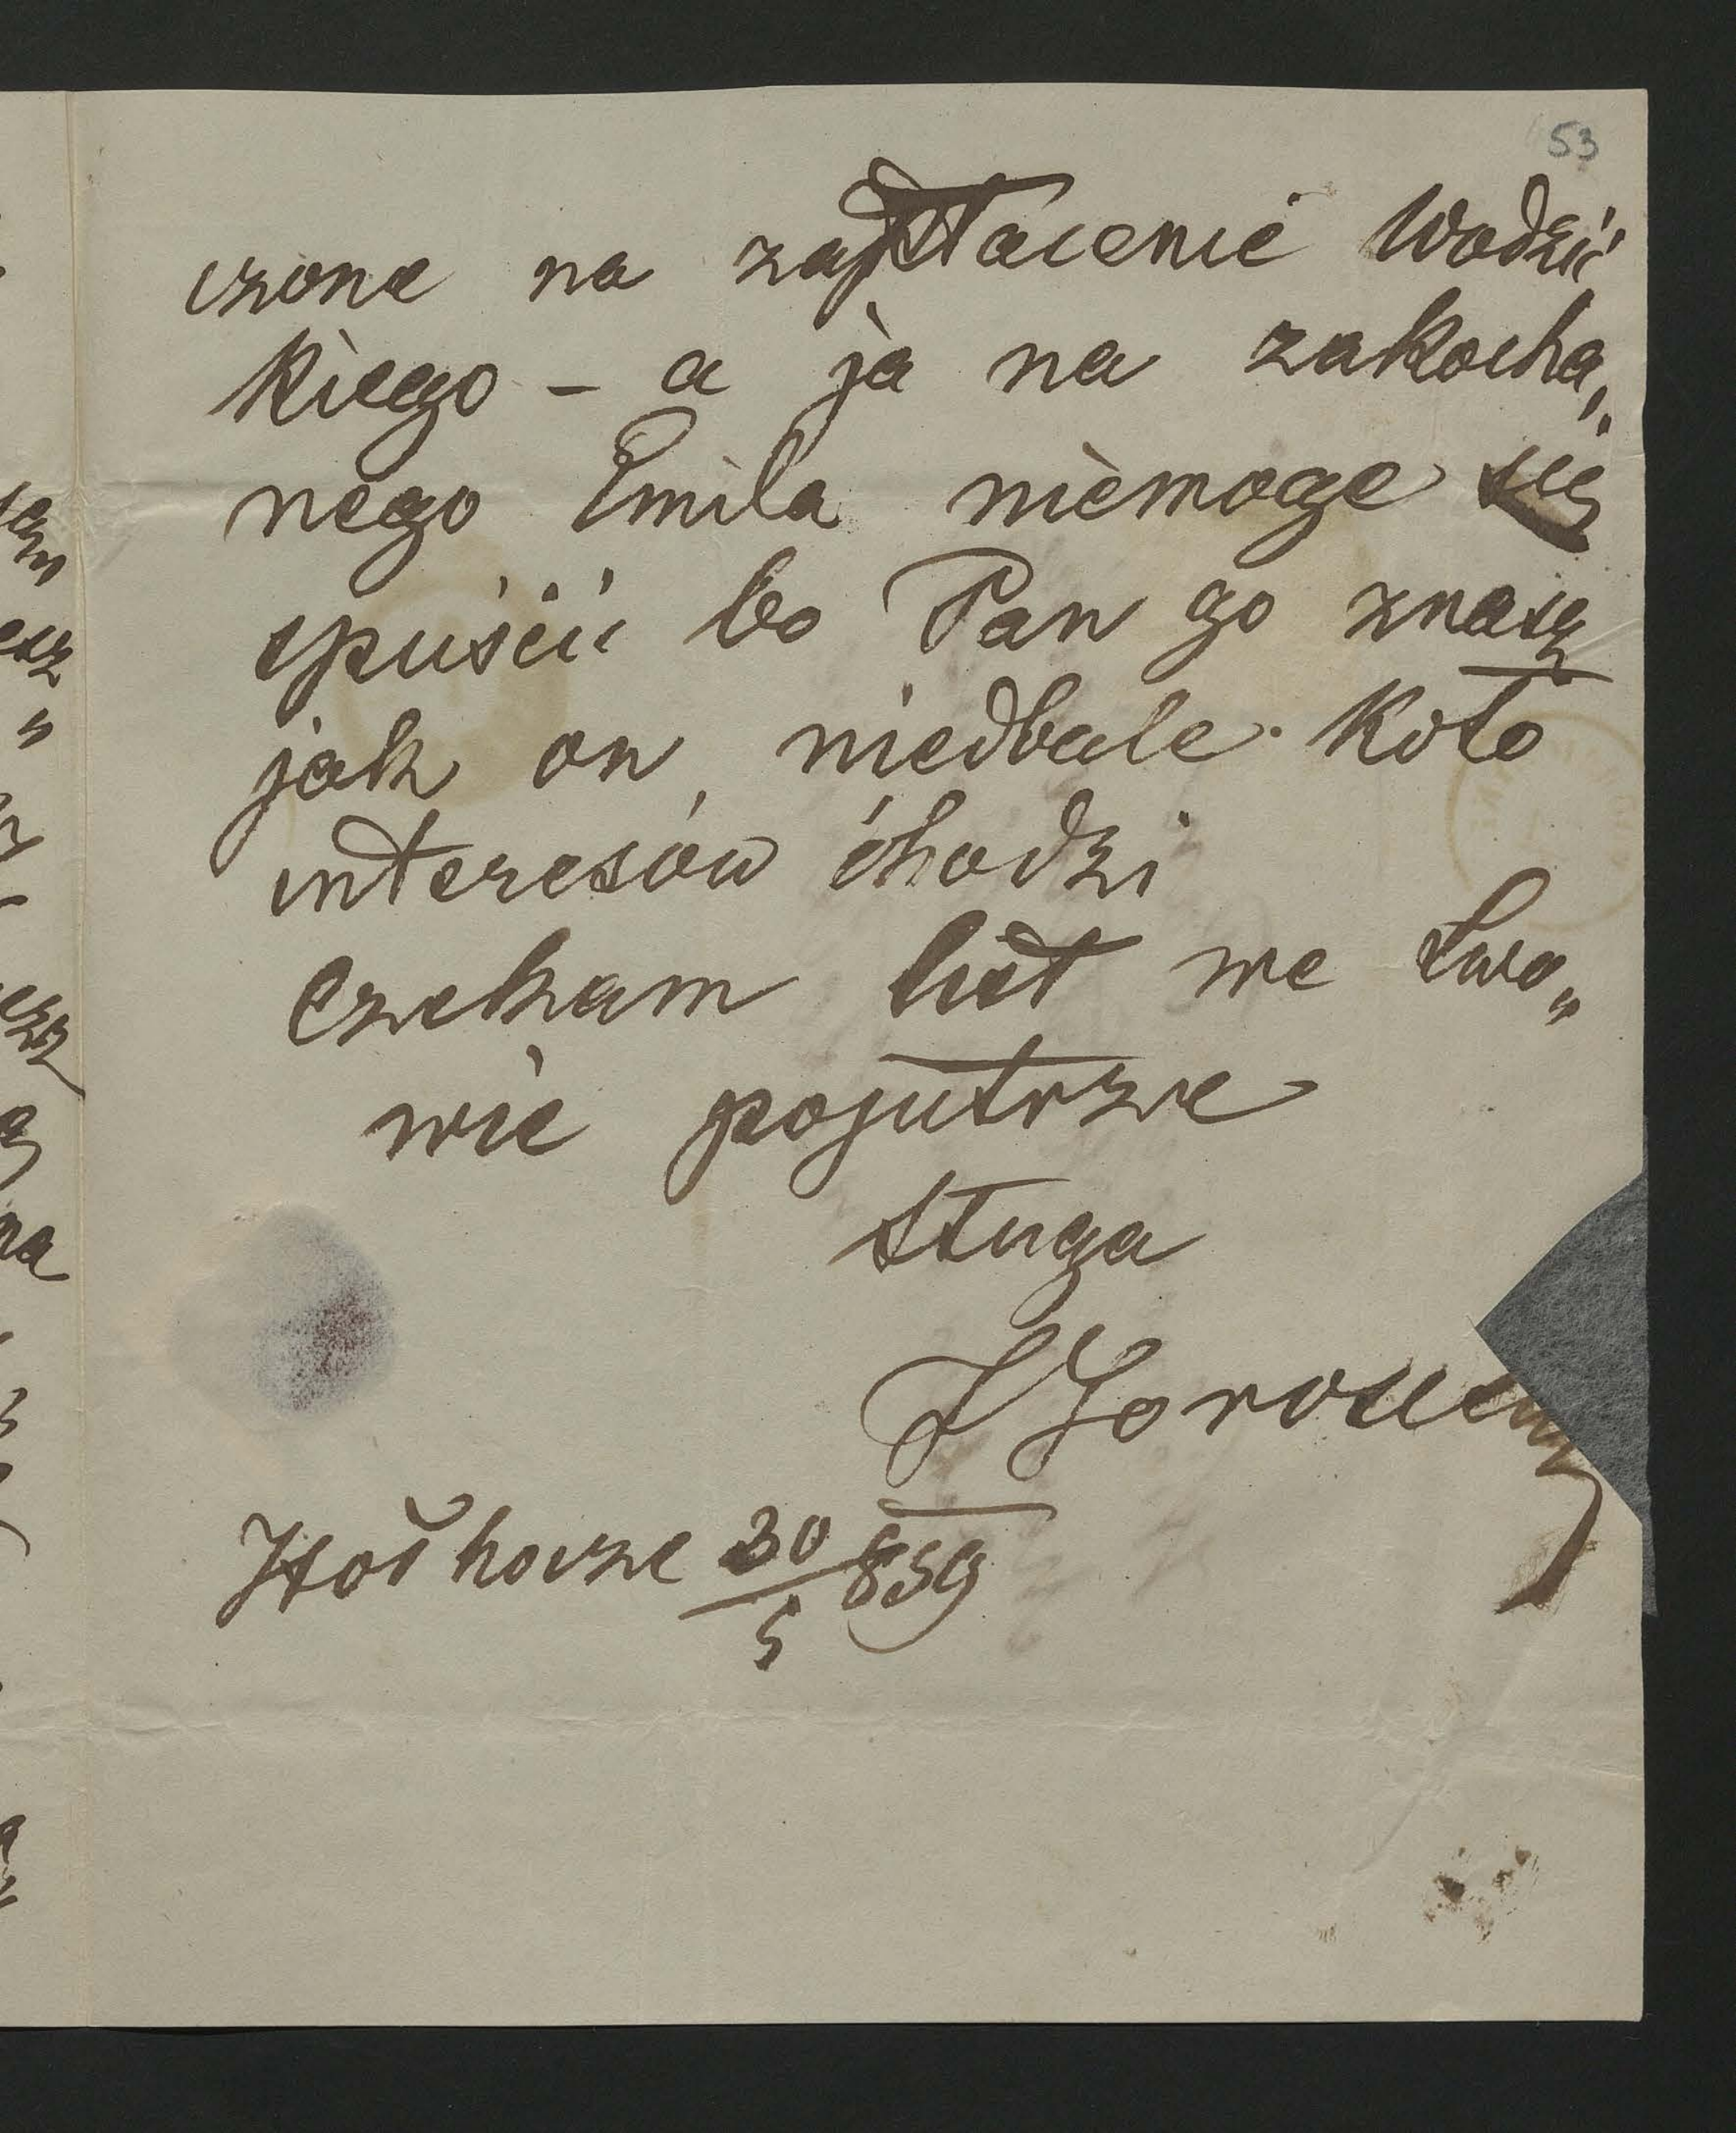 53
czone na zapłacenie Wodzic
kiego – a ja na zakocha„
nego Emila niemoge się
spuścić bo Pan go znasz
jak on niedbale koło
interesów chodzi
Czekam list we Lwo„
wie pojutrze
sługa
30/5 859